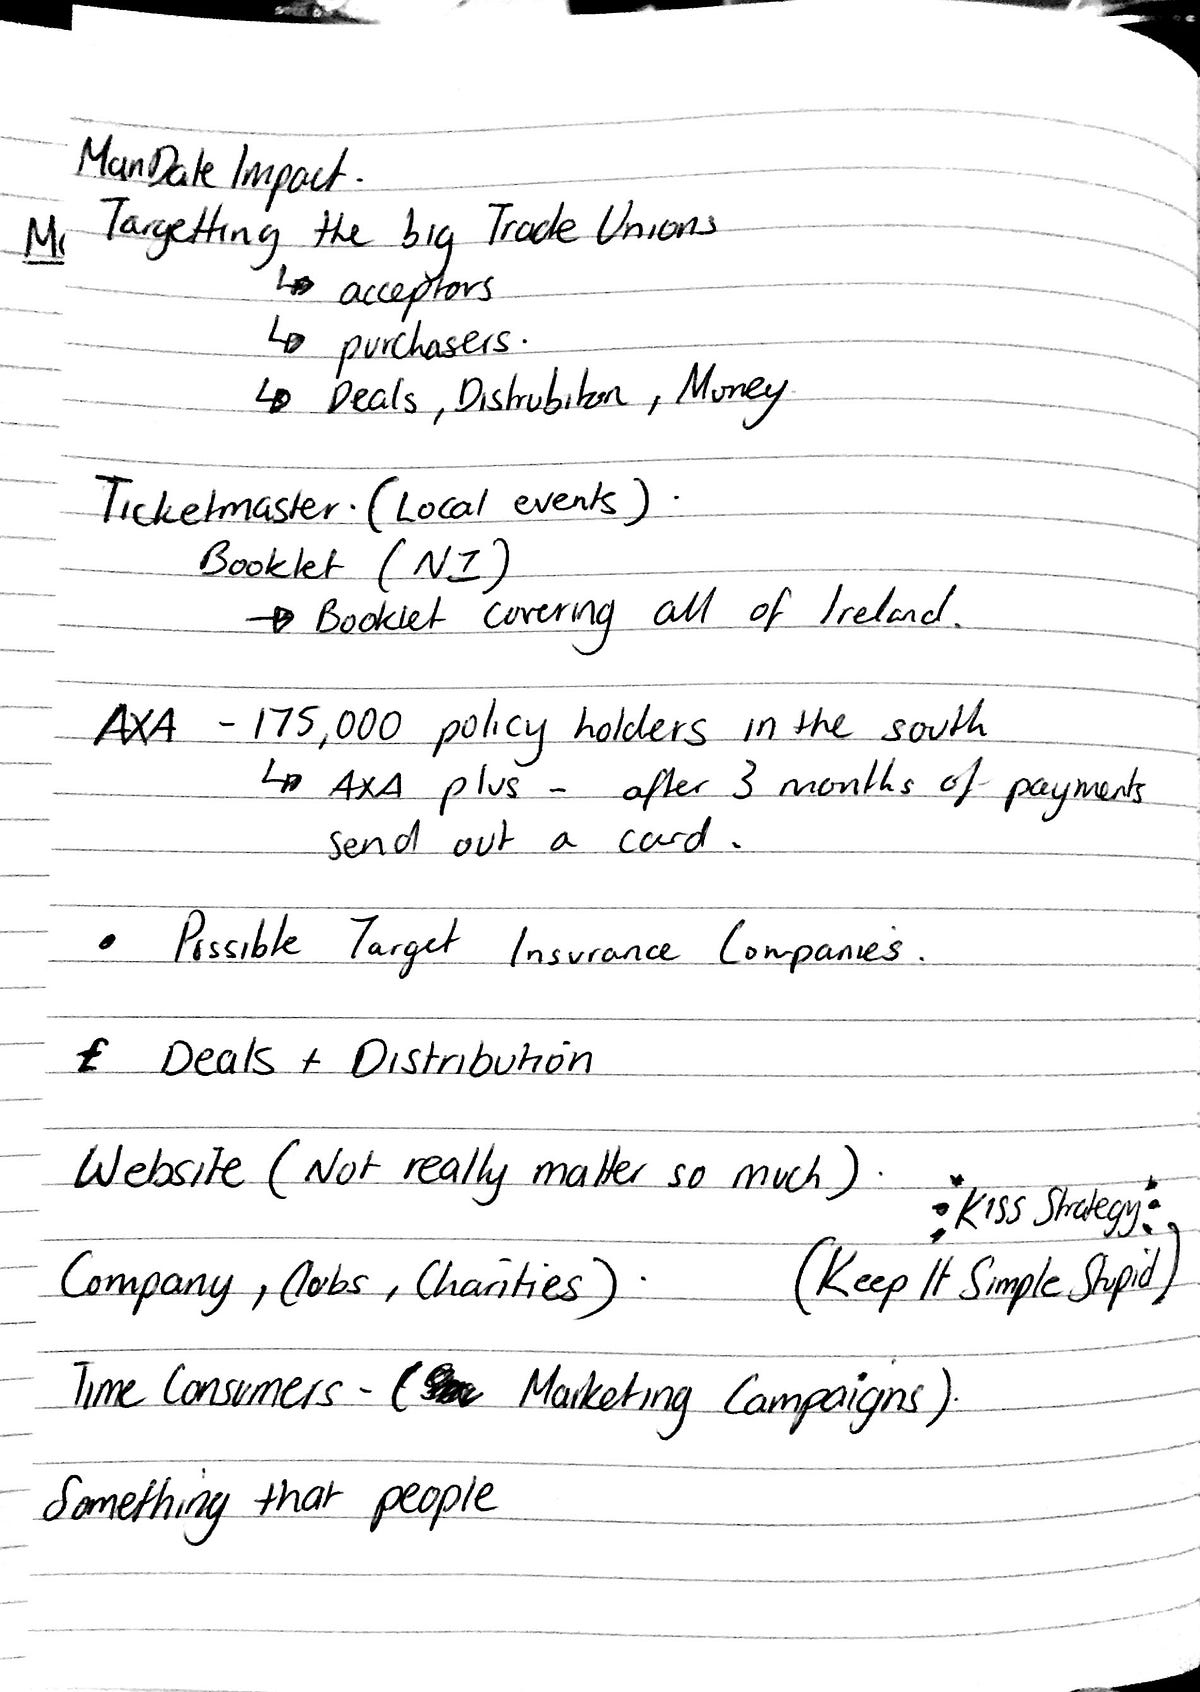 ManDate Impact.
Targetting the big Trade Unions
↳ acceptors
↳ purchasers.
↳ Deals, Distrubiton, Money
Ticketmaster. (Local events).
Booklet (NI)
→ Booklet covering all of Ireland.
AXA - 175,000 policy holders in the south
↳ AXA plus - after 3 months of payments
send out a card.
• Possible Target Insurance Companies.
£ Deals + Distribution
Website (Not really matter so much).
KISS Strategy
(Keep It Simple Stupid)
Company, Clubs, Charities).
Time Consumers - ( Marketing Campaigns).
Something that people